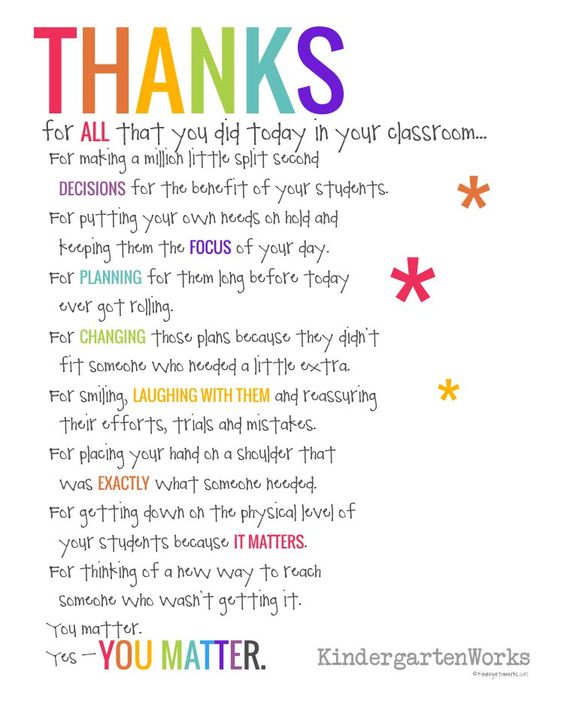 THANKS
for ALL that you did today in your classroom...
For making a million little split second
DECISIONS for the benefit of your students.
For putting your own needs on hold and
keeping them the FOCUS of your day.
For PLANNING for them long before today
ever got rolling.
For CHANGING those plans because they didn't
fit someone who needed a little extra.
For smiling, LAUGHING WITH THEM and reassuring
their efforts, trials and mistakes.
For placing your hand on a shoulder that
was EXACTLY what someone needed.
For getting down on the physical level of
your students because IT MATTERS.
For thinking of a new way to reach
someone who wasn't getting it.
You matter.
Yes - YOU MATTER.
KindergartenWorks